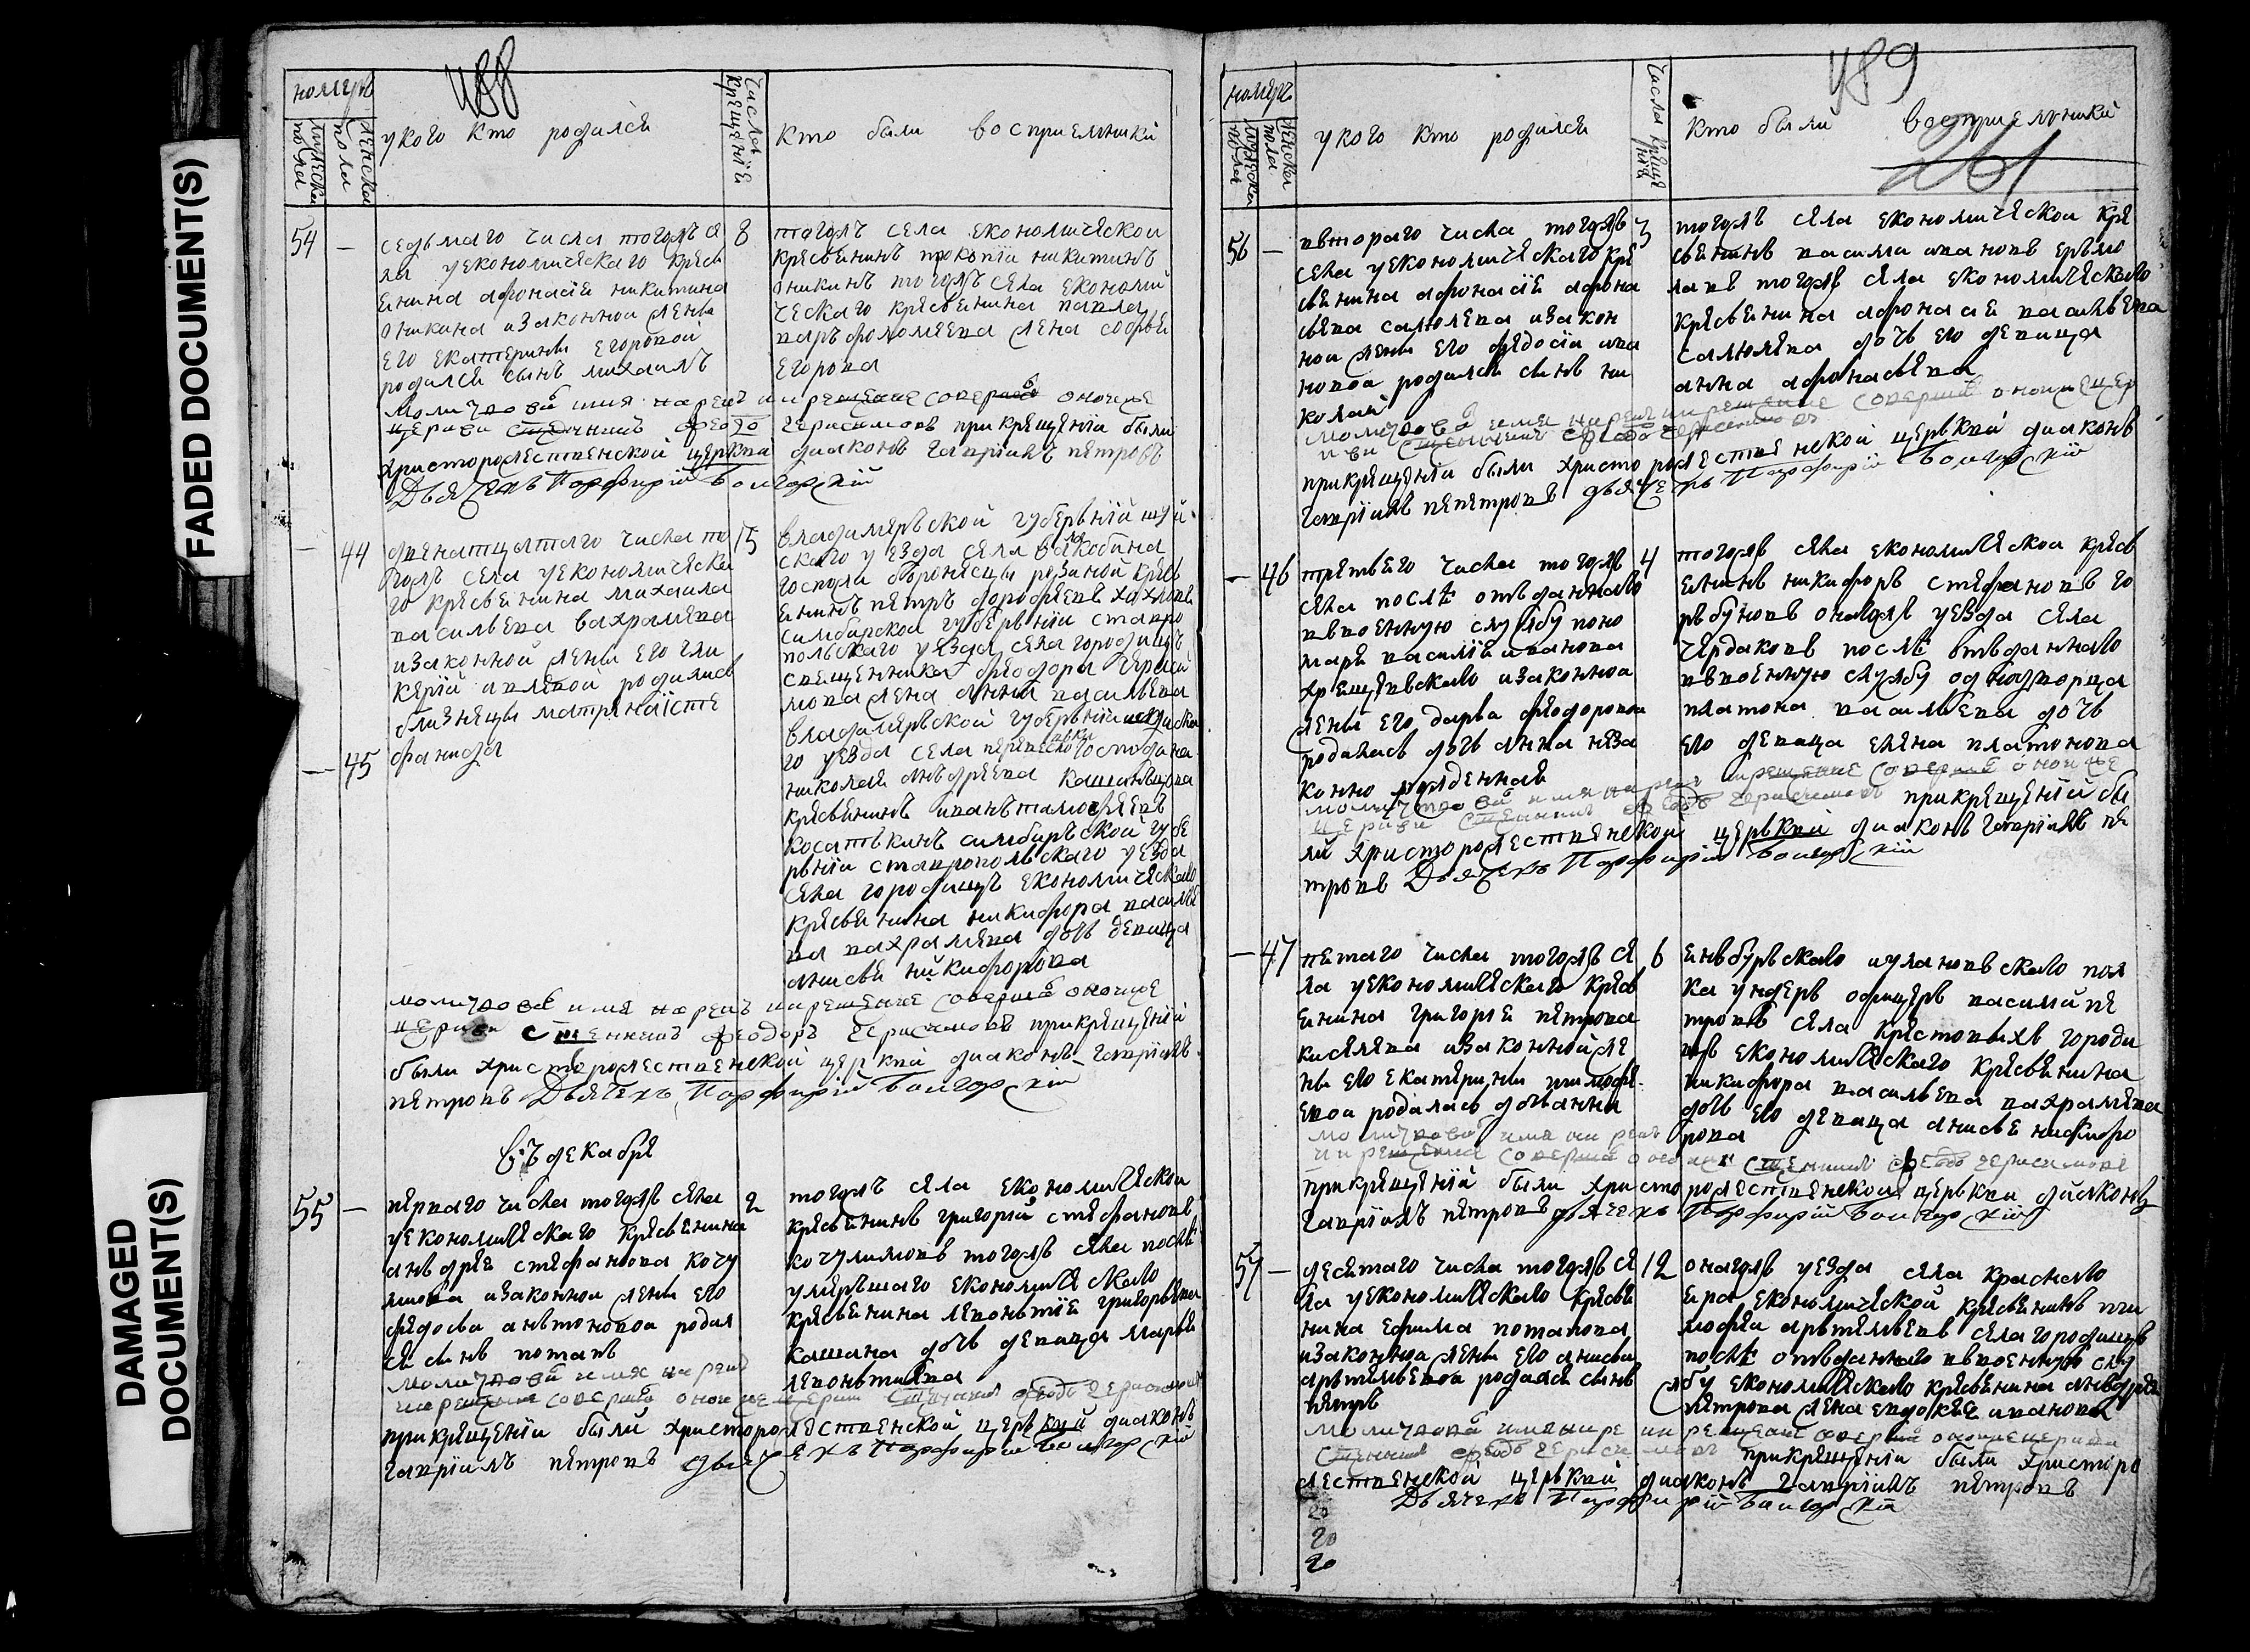 FADED DOCUMENT(S)
DAMAGED
DOCUMENT(S)
488
номеръ
мужеска пола
женска пола
у кого кто родился
числа крещенїе
кто были восприемники
54 —
седьмаго числа тогожъ се
ла у економическаго кресь
енина афонасїе никитина
оникина изаконной жены
его екатерины егоровой
родился сынъ михаилъ
8
тогожъ села економической
кресьенинъ прокопїй никитинъ
оникинъ тогожъ села економи
ческаго кресьенина павла
варфоломеева жена софья
егорова
молитвовалъ имя нарекъ и крещение совершалъ оное же
церкви священникъ Феодоръ Герасимовъ при крещенїи были
христорожественской церкви диаконъ гаврїилъ петровъ
Дьячекъ Порфирїй Болгорскїй
— 44
двенатцатаго числа то
гожъ села у економическа
го кресьенина михаила
васильева вахрамеева
изаконной жены его гли
керїи ивлевой родились
близнецы матрена їсте
— 45
фанида
15
владимерьской губернїи шуй
скаго уезда села
госпожи
енинъ петръ дорофеевъ
симбирской губернїи ставро
польскаго уезда села городищъ
священника феодора гераси
мова жена анна васильева
владимерьской губернїи
го уезда села господина
николая андреева
кресьенинъ иванъ тимофеевъ
косаткинъ симбирьской губе
рьнїи ставропольскаго уезда
села городищъ економическаго
кресьенина никифора василье
ва вахрамеева дочь девица
анисья никифорова
молитвовалъ имя нарекъ и крещение совершалъ оное же
церкви священникъ Феодоръ Герасимовъ при крещенїй
были христорожественской церкви диаконъ гаврїилъ
петровъ Дьячекъ Порфирїй Болгорскїй
въ декабре
55 —
перваго числа тогожъ села
у економическаго кресьенина
андрея стефанова кочу
лимова изаконной жены его
федосьи антоновой родил
ся сынъ потапъ
2
тогожъ села економической
кресьенинъ григорїй стефановъ
кочулимовъ тогожъ села после
умерьшаго економическаго
кресьенина леоньтїе григорьева
кашана дочь девица марья
леоньтиева
молитвовалъ имя нарекъ
и крещение совершалъ оное же церкви священникъ Феодоръ Герасимовъ
при крещенїи были христорожественской церькви диаконъ
гаврїилъ петровъ дьячекъ Порфирїй Болгорскїй
489
261
номеръ
мужеска пола
женска пола
у кого кто родился
числа крещенїя
кто были восприемники
56 —
второго числа тогожъ
села у економическаго кре
сьенина афонасїе афона
сьева самолева изакон
ной жены его федосїи ива
новой родился сынъ ни
колай
3
тогожъ села економической кре
сьенинъ василий ивановъ ерьмо
лаевъ тогожъ села економическаго
кресьенина афонасе васильева
самолева дочь его девица
анна афонасьева
молитвовалъ имя нарекъ и крещение совершалъ оное же цер
кви священникъ Феодоръ Герасимовъ
при крещенїй были христорожественской церькви диаконъ
гаврїилъ петровъ дьячекъ Порфирїй Болгорскїй
— 46
третьего числа тогожъ
села после отъданнаго
в военную службу поно
маря василїе иванова
хрещевскаго изаконной
жены его дарьи федоровой
родилась дочь анна неза
конно рожденная
4
тогожъ села економической кресь
енинъ никифоръ стефановъ го
рьбуновъ онагожъ уезда села
чердаковъ после отъданнаго
в военную службу однодворца
платона васильева дочь
его девица елена платонова
молитвовалъ имя нарекъ и крещение совершалъ оное же
церкви священникъ Феодоръ Герасимовъ при крещенїй бы
ли христорожественской церькви диаконъ гаврїилъ пе
тровъ Дьячекъ Порфирїй Болгорскїй
— 47
петаго числа тогожъ се
ла у економическаго кресь
енина григорья петрова
киселева изаконной же
ны его екатерины тимофе
евой родилась дочь анна
6
уланьскаго пол
ка ундеръ офицеръ василий пе
тровъ села крестовыхъ городи
щъ економическаго кресьенина
никифора васильева вахрамеева
дочь его девица анисья никифо
рова
молитвовалъ имя нарекъ
и крещение совершалъ оное же священникъ Феодоръ Герасимовъ
при крещенїй были христорожественской церькви диаконъ
гаврїилъ петровъ дьячекъ Порфирїй Болгорскїй
57 —
десятаго числа тогожъ се
ла у економическаго кресье
нина ефима потапова
изаконной жены его анисьи
арьтемьевой родился сынъ
петръ
12
онагожъ уезда села краснаго
яра економической кресьенинъ ти
мофей арьтемьевъ села городищъ
после отъданнаго в военную слу
жбу економическаго кресьенина андрея
петрова жена евдокея иванова
молитвовалъ имя наре и крещение совершалъ оное же церкви
священникъ Феодоръ Герасимовъ при крещенїи были христоро
жественской церькви диаконъ гаврїилъ петровъ
Дьячекъ Порфирїй Болгорскїй
20
20
20